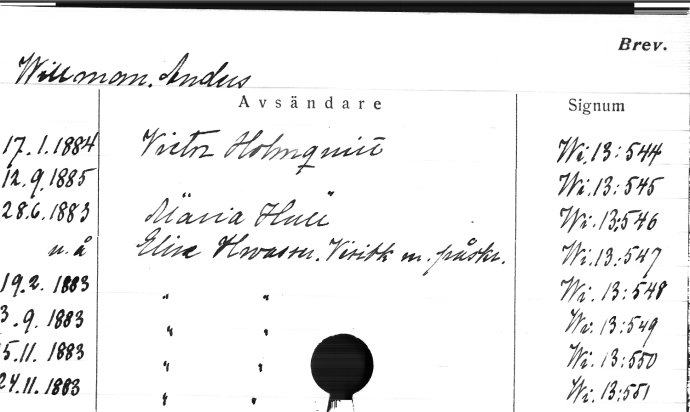 Brev.
Willman, Anders
Avsändare Signum
17.1.1884 Victor Holmquist Wi.13:544
12.9.1885 Wi.13:545
28.6.1883 Maria Wi.13:546
u.å Elise Hwasser. Visitk m. påskr. Wi.13:547
19.2.1883 " " Wi.13:548
3.9.1883 " " Wi.13:549
5.11.1883 " " Wi.13:550
24.11.1883 " " Wi.13:551